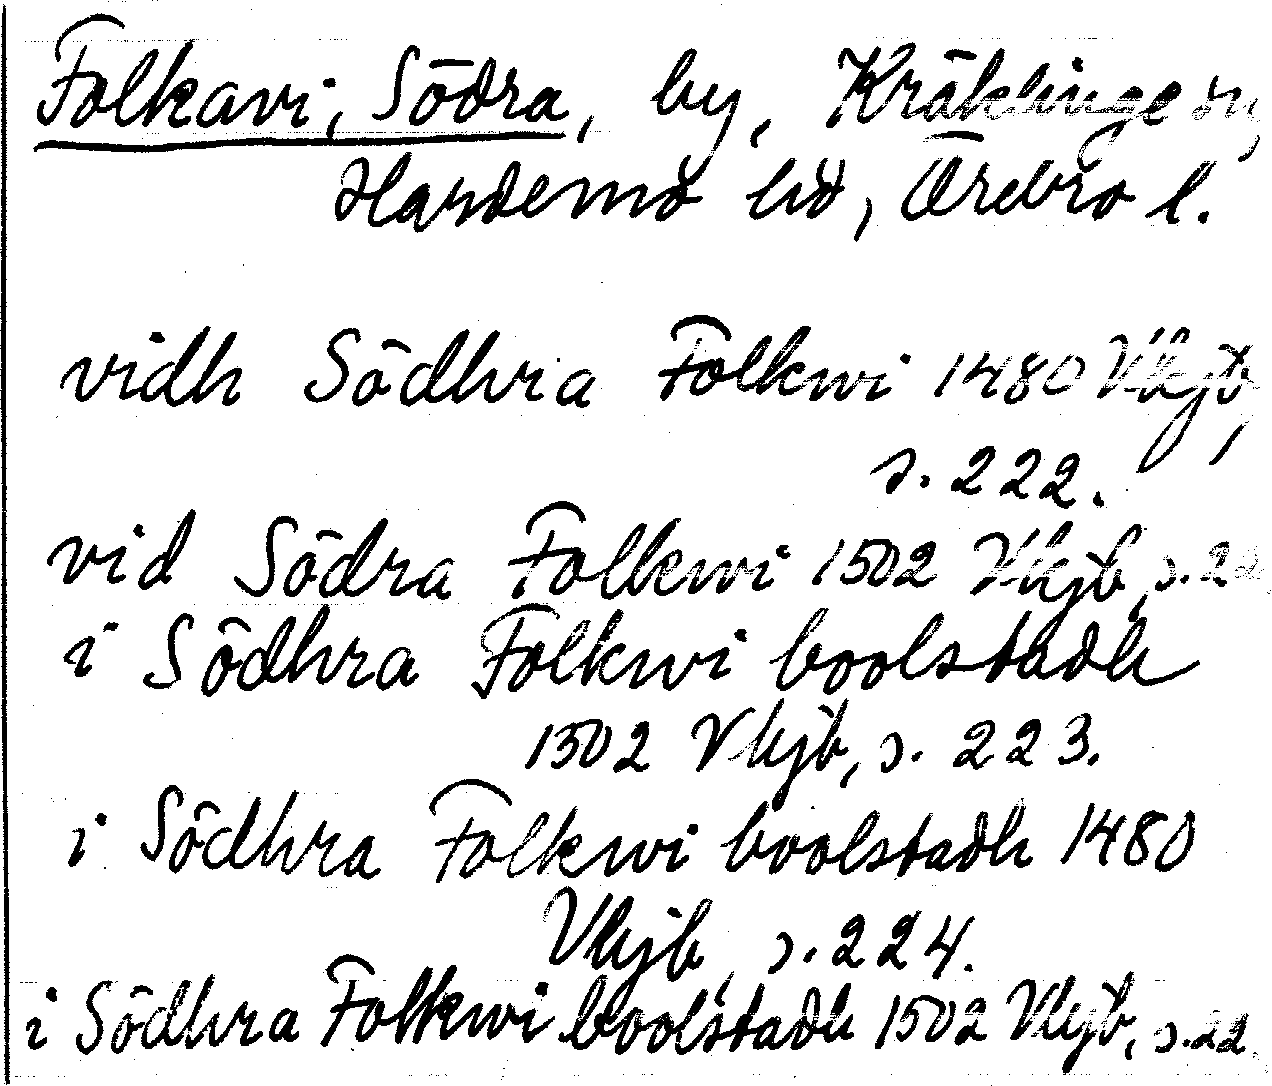 Folkavi, Södra, by, Kräklinge sn,
Hardemo hd, Örebro l.
vidh Södhra Folkwi 1480 Vkjb,
s. 222.
vid Södra Folkwi 1502 Vkjb, s. 22
i Södhra Folkwi boolstadh
1502 Vkjb, s. 223.
i Södhra Folkwi boolstadh 1480
Vkjb, s. 224.
i Södhra Folkwi boolstadh 1502 Vkjb, s. 22